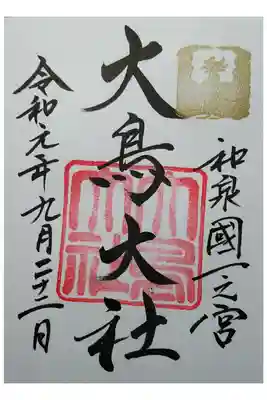 和泉國一之宮
大鳥大社
令和元年九月二十二日